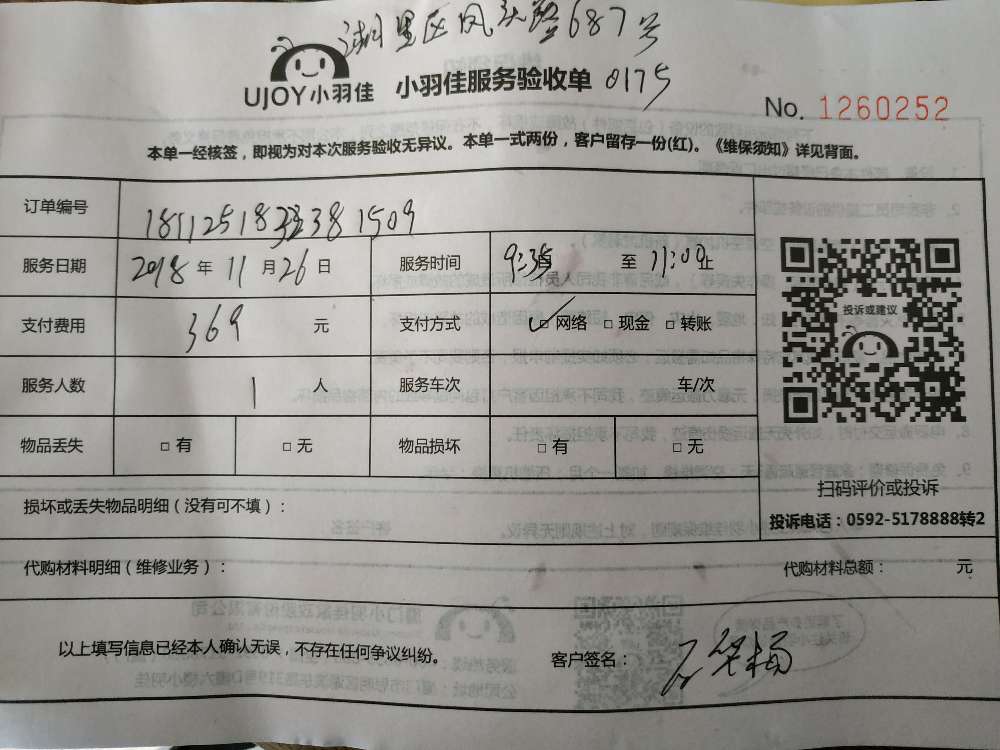 湖里区凤头路687号
UJOY小羽佳 小羽佳服务验收单 0175
No. 1260252
本单一经核签，即视为对本次服务验收无异议。本单一式两份，客户留存一份(红)。《维保须知》详见背面。
订单编号
服务日期 2018 年 11 月 26 日 服务时间 9:35 至 11:09 止
支付费用 369 元 支付方式 ☑ 网络 □ 现金 □ 转账
投诉或建议
服务人数 1 人 服务车次 车/次
物品丢失 □ 有 □ 无 物品损坏 □ 有 □ 无
扫码评价或投诉
损坏或丢失物品明细（没有可不填）：
投诉电话：0592-5178888转2
代购材料明细（维修业务）： 代购材料总额： 元
以上填写信息已经本人确认无误，不存在任何争议纠纷。 客户签名：